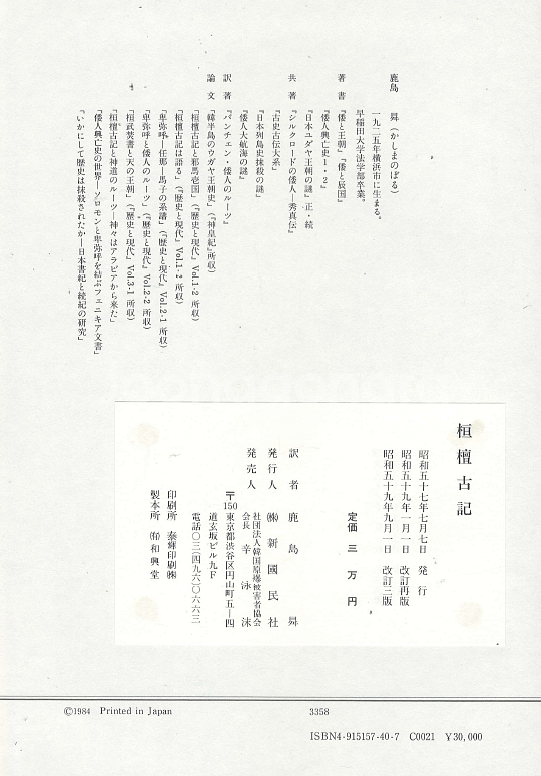 鹿島　昇（かしまのぼる）
一九二五年横浜市に生まる。
早稲田大学法学部卒業。
著書　『倭と王朝』『倭と辰国』
『倭人興亡史1・2』
『日本ユダヤ王朝の謎』正・続
共著　『シルクロードの倭人―秀真伝』
『古史古伝大系』
『日本列島史抹殺の謎』
『倭人大航海の謎』
訳著　『バンチェン・倭人のルーツ』
論文　「韓半島のウガヤ王朝史」（『神皇紀』所収）
「桓檀古記と邪馬壱国」（『歴史と現代』Vol.1-2所収）
「桓檀古記は語る」（『歴史と現代』Vol.1-2所収）
「卑弥呼―任那―馬子の系譜」（『歴史と現代』Vol.2-1所収）
「卑弥呼と倭人のルーツ」（『歴史と現代』Vol.2-2所収）
「桓武焚書と天の王朝」（『歴史と現代』Vol.3-1所収）
「桓檀古記と神道のルーツ―神々はアラビアから来た」
「倭人興亡史の世界―ソロモンと卑弥呼を結ぶフェニキア文書」
「いかにして歴史は抹殺されたか―日本書紀と続紀の研究」
桓檀古記
昭和五十七年七月七日　発行
昭和五十九年一月一日　改訂再版
昭和五十九年九月一日　改訂三版
定価　三万円
訳者　鹿島　昇
発行人　㈱新國民社
発売人　社団法人韓国原爆被害者協会
会長　辛泳洙
〒150　東京都渋谷区円山町五―四
道玄坂ビル九F
電話〇三（四九六）〇六六三
印刷所　泰輝印刷㈱
製本所　㈲和興堂
©1984 Printed in Japan
3358
ISBN4-915157-40-7 C0021 ¥30,000